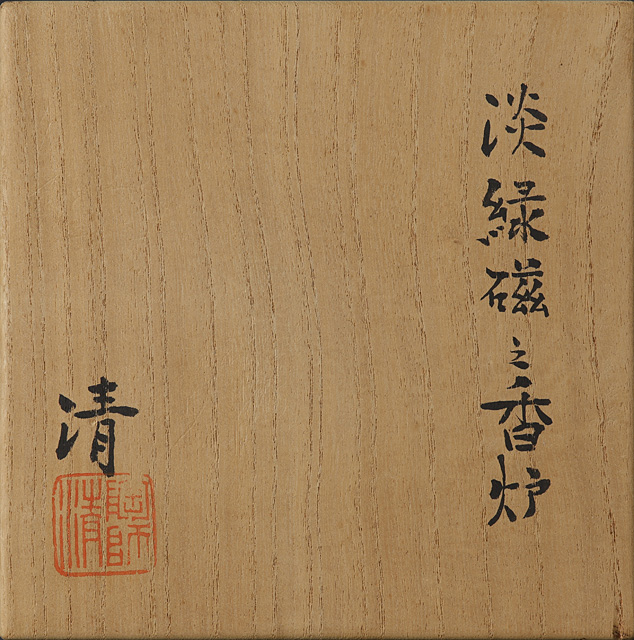 淡緑磁之香炉
清